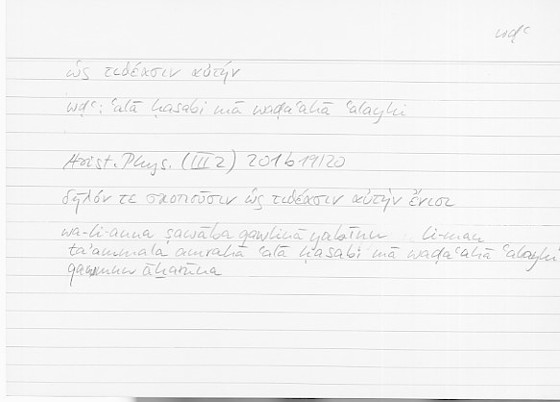 wḍʿ
ὡς τιθέασιν αὐτήν
wḍʿ: ʿalā ḥasabi mā waḍaʿahā ʿalayhi
Arist. Phys. (III 2) 201b19/20
δῆλόν τε σκοποῦσιν ὡς τιθέασιν αὐτήν ἔνιοι
wa-li-anna ṣawāba qawlinā yabīnu li-man
taʾammala amrahā ʿalā ḥasabi mā waḍaʿahā ʿalayhi
qawmun āḫarūna